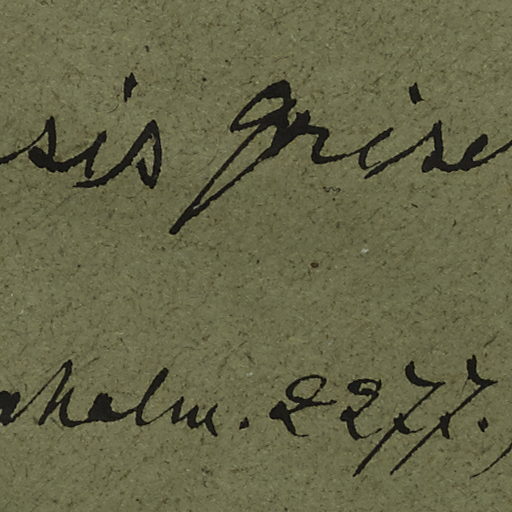 sis grise
aholm. 2277.